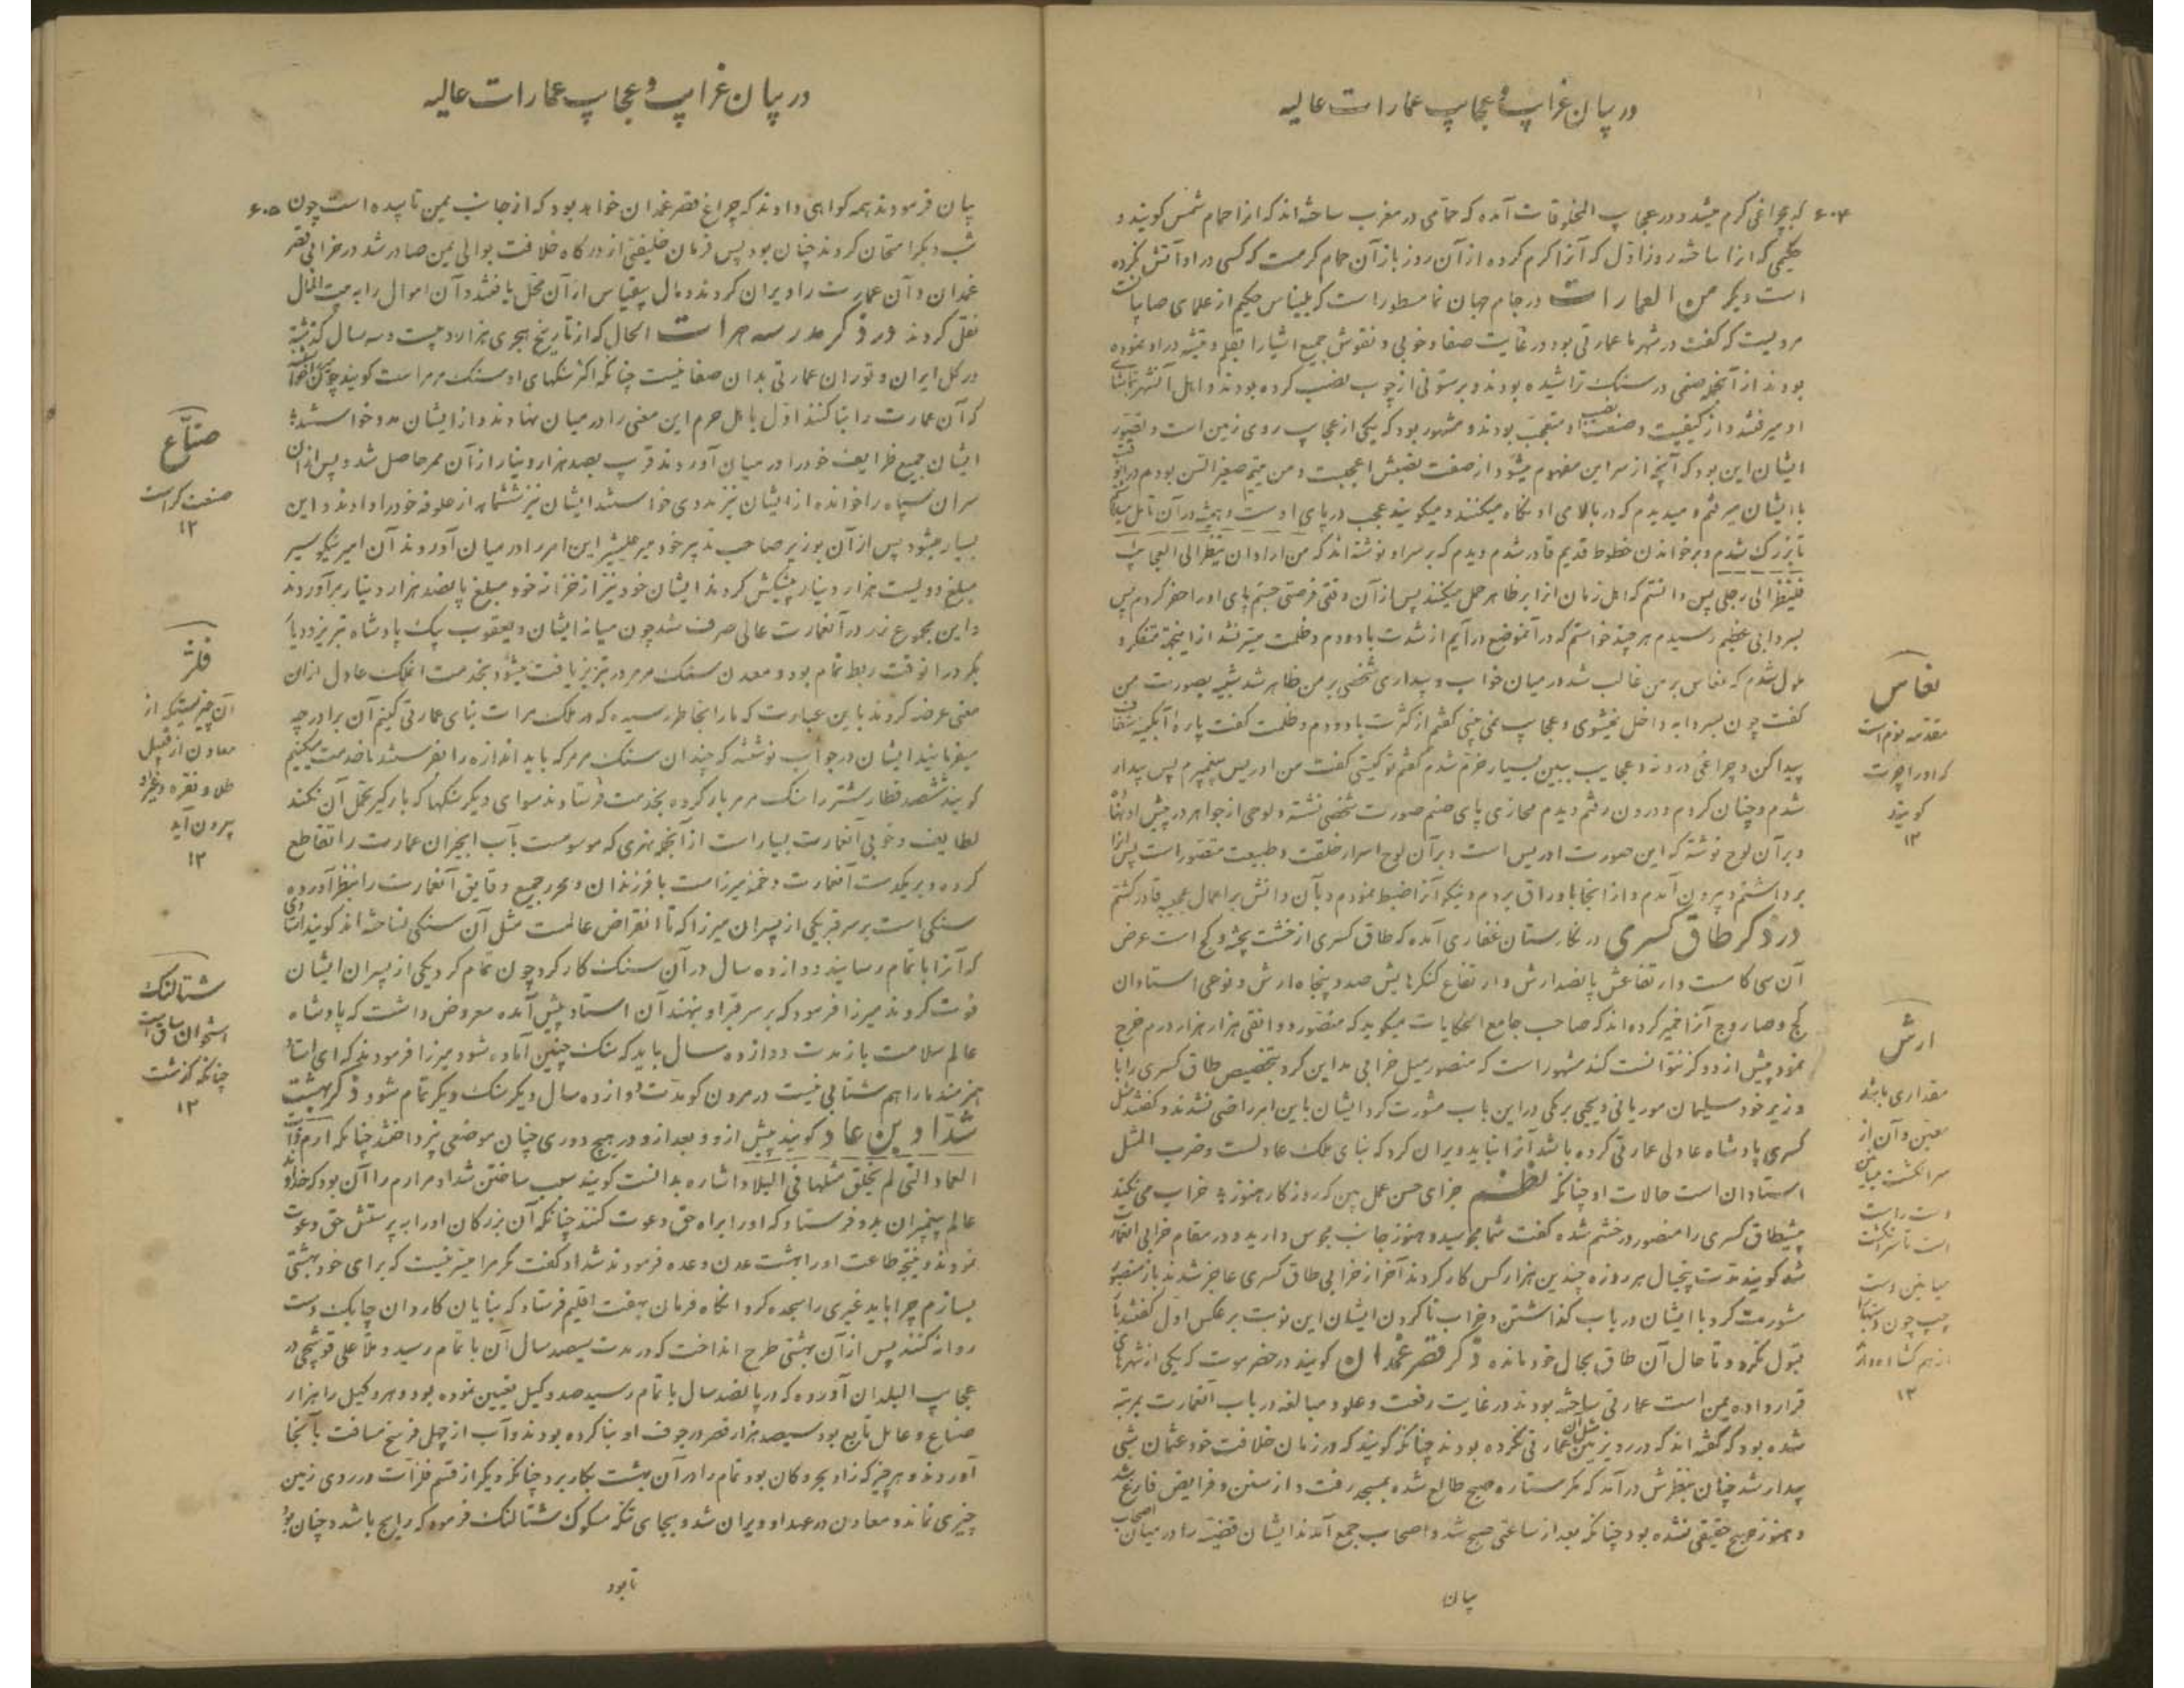 در بیان غرایب و عجایب عمارات عالیه
۶۰۴ که بچراغی کرم میشد و در عجایب المخلوقات آمده که حمامی در مغرب ساخته اند که انرا حمام شمس کویند و
حکیمی که انرا ساخته روز اول که آنرا کرم کرده از آن روز باز آن حمام کرمست که کسی در او آتش نکرده
است دیکر من العمارات در جام جهان نما مسطور است که بلیناس حکیم از علمای صابیات
مرویست که کفت در شهر ما عمارتی بود در غایت صفا و خوبی و نقوش جمیع اشیا را بقلم و تیشه در او نموده
بودند از آنجمله صنمی در سنک تراشیده بودند و بر ستونی از چوب نصب کرده بودند و اهل آنشهر بتماشای
او میرفتند و از کیفیت و صنعت نصب او متعجب بودند و مشهور بود که یکی از عجایب روی زمین است و تصور
ایشان این بود که آنچه از سر این مفهوم میشود از صفت نصبش اعجبست و من یتیم صغیر السن بودم در انوقت
با ایشان میرفتم و میدیدم که در بالای او نکاه میکنند و میکویند عجب در پای اوست و همیشه در آن تامل میکردم
تا بزرک شدم و بر خواندن خطوط قدیم قادر شدم دیدم که بر سر او نوشته اند که من اراد ان ینظر الی العجایب
فلینظر الی رجلی پس دانستم که اهل زمان انرا بر ظاهر حمل میکنند پس از آن وقتی فرصتی جستم پای او را حفر کردم پس
بسردابی عظیم رسیدم هر چند خواستم که در آنموضع درآیم از شدت باد و دم و ظلمت میسر نشد از اینجهة متفکر و
ملول شدم که نعاس بر من غالب شد در میان خواب و بیداری شخصی بر من ظاهر شد شبیه بصورت من
کفت چون بسردابه داخل نمیشوی و عجایب نمی بینی کفتم از کثرت باد و دم و ظلمت کفت پارهٔ آبکینه شفاف
پیدا کن و چراغی در و نه و عجایب ببین بسیار خرم شدم کفتم تو کیستی کفت من ادریس پیغمبرم پس بیدار
شدم و چنان کردم و درون رفتم دیدم محاذی پای صنم صورت شخصی نشسته و لوحی از جواهر در پیش او نهاده
و بر آن لوح نوشته که این صورت ادریس است و بر آن لوح اسرار خلقت و طبیعت متصور است پس انرا
برداشتم و بیرون آمدم و از انجا باوراق بردم و نیکو آنرا ضبط نمودم و بآن دانش بر اعمال عجیبه قادر کشتم
در ذکر طاق کسری در نکارستان غفاری آمده که طاق کسری از خشت پخته و کچ است عرض
آن سی کامست و ارتفاعش پانصد ارش و ارتفاع کنکرهایش صد و پنجاه ارش و نوحی استادان
کچ و صاروج آنرا خمیر کرده اند که صاحب جامع الحکایات میکوید که منصور دوانقی هزار هزار درم خرج
نمود بیش از دو کز نتوانست کند مشهور است که منصور میل خرابی مداین کرد بتخصیص طاق کسری را با
وزیر خود سلیمان موریانی و یحیی برمکی در این باب مشورت کرد ایشان باین امر راضی نشدند و کفتند مثل
کسری پادشاه عادلی عمارتی کرده باشد آنرا نباید ویران کرد که بنای ملک عادلست و ضرب المثل
استادان است حالات او چنانکه نظم جزای حسن عمل بین که روزکار هنوز * خراب می نکند
پیشطاق کسری را منصور در خشم شده کفت شما مجوسید و هنوز جانب مجوس دارید و در مقام خرابی انعمارت
شد کویند مدت پنجسال هر روزه چندین هزار کس کار کردند آخر از خرابی طاق کسری عاجز شدند باز منصور
مشورت کرد با ایشان در باب کذاشتن و خراب ناکردن ایشان این نوبت بر عکس اول کفتند تا
قبول نکرد و تا حال آن طاق بحال خود مانده ذکر قصر غمدان کویند در حضرموت که یکی از شهرهای
قرارداده یمن است عمارتی ساخته بودند در غایت رفعت و علو و مبالغه در باب آنعمارت بمرتبهٔ
شده بود که کفته اند که در روی زمین مثل آن عمارتی نکرده بودند چنانکه کویند که در زمان خلافت خود عثمان شبی
بیدار شد چنان بنظرش درآمد که مکر ستاره صبح طالع شده بمسجد رفت و از سنن و فرایض فارغ شد
و هنوز صبح حقیقی نشده بود چنانکه بعد از ساعتی صبح شد و اصحاب جمع آمدند ایشان قضیه را در میان اصحاب
بیان
نعاس
مقدمه نوم است
که اورا چرت
کویند
۱۲
ارش
مقداری باشد
معین و آن از
سر انکشت میانین
دست راست
است تا سر انکشت
میانین دست
چپ چون دستها را
از هم کشاده دارند
۱۲
در بیان غرایب و عجایب عمارات عالیه
بیان فرمودند همه کواهی دادند که چراغ قصر غمدان خواهد بود که از جانب یمن تابیده است چون ۶۰۵
شب دیکر امتحان کردند چنان بود پس فرمان خلیفتی از درکاه خلافت بوالی یمن صادر شد در خرابی قصر
غمدان و آن عمارت را ویران کردند و مال بیقیاس از آن محل یافتند و آن اموال را به بیت المال
نقل کردند در ذکر مدرسه هرات الحال که از تاریخ هجری هزار و دویست و سه سال کذشته
در کل ایران و توران عمارتی بدان صفا نیست چنانکه اکثر سنکهای او سنک مرمر است کویند چون میرزا خواست
که آن عمارت را بنا کنند اول با اهل حرم این معنی را در میان نهادند و از ایشان مدد خواستند
ایشان جمیع ظرایف خود را در میان آوردند قریب بصد هزار دینار از آن ممر حاصل شد و پس از آن
سران سپاه را خوانده از ایشان نیز مددی خواستند ایشان نیز ششماهه از علوفه خود را دادند و این
بسیار میشود پس از آن بوزیر صاحب تدبیر خود میر علیشیر این امر را در میان آوردند آن امیر نیکو سیر
مبلغ دویست هزار دینار پیشکش کردند ایشان خود نیز از خزانه خود مبلغ پانصد هزار دینار برآوردند
و این مجموع زر در آنعمارت عالی صرف شد چون میانه ایشان و یعقوب بیک پادشاه تبریز و دیار
بکر در انوقت ربط تمام بود و معدن سنک مرمر در تبریز یافت میشود بخدمت انملک عادل از ان
معنی عرضه کردند باین عبارت که ما را بخاطر رسیده که در ملک هرات بنای عمارتی کنیم آن برادر چه
میفرمایند ایشان در جواب نوشتند که چندان سنک مرمر که باید اندازه را بفرستند تا خدمت میکنیم
کویند ششصد قطار شتر را سنک مرمر بار کرده بخدمت فرستادند سوای دیکر سنکها که بارکیر تحمل آن نکند
لطایف و خوبی آنعمارت بسیار است از آنجمله نهری که موسومست بآب انجیران عمارت را تقاطع
کرده و بر یکدست آنعمارت دخمه میرزاست با فرزندان و بحر جمیع دقایق آنعمارت را بنظر آورده
سنکی است بر سر قبر یکی از پسران میرزا که تا انقراض عالمست مثل آن سنکی نساخته اند کویند استادی
که آنرا باتمام رسانید دوازده سال در آن سنک کار کرد چون تمام کرد یکی از پسران ایشان
فوت کردند میرزا فرمود که بر سر قبر او بنهند آن استاد پیش آمده معروض داشت که پادشاه
عالم سلامت باز مدت دوازده سال باید که سنک چنین آماده شود میرزا فرمودند که ای استاد
هنرمند ما را هم شتابی نیست در مردن کو مدت دوازده سال دیکر سنک دیکر تمام شود ذکر بهشت
شداد بن عاد کویند پیش از و و بعد از و در هیچ دوری چنان موضعی نپرداختند چنانکه ارم ذات
العماد التی لم یخلق مثلها فی البلاد اشاره بدانست کویند سبب ساختن شداد مر ارم را آن بود که خداوند
عالم پیغمبران بدو فرستاد که او را براه حق دعوت کنند چنانکه آن بزرکان او را به پرستش حق دعوت
نمودند و نتیجه طاعت او را بهشت عدن وعده فرمودند شداد کفت مکر مرا میسر نیست که برای خود بهشتی
بسازم چرا باید غیری را سجده کرد انکاه فرمان بهفت اقلیم فرستاد که بنایان کاردان چابک دست
روانه کنند پس از آن بهشتی طرح انداخت که در مدت سیصد سال آن باتمام رسید و ملا علی قوشچی در
عجایب البلدان آورده که در پانصد سال باتمام رسید صد وکیل تعیین نموده بود و هر وکیل را هزار
صناع و عامل تابع بود سیصد هزار قصر در جوف او بنا کرده بودند و آب از چهل فرسخ مسافت بآنجا
آوردند و هر چیز که زاد بحر و کان بود تمام را در آن بهشت بکار برد چنانکه دیکر از قسم فلزات در روی زمین
چیزی نماند و معادن در عهد او ویران شد و بجای تنکه مسکوک شتالنک فرمود که رایج باشد و چنان بود
تا بود
صناع
صنعت کر است
۱۲
فلز
آن چیزیست که از
معادن از قبیل
طلا و نقره و غیره
بیرون آید
۱۲
شتالنک
استخوان ساق است
چنانکه کذشت
۱۲